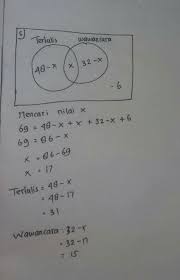 S)
Tertulis wawancara
48-x x 32-x
-6
Mencari nilai x
69 = 48-x + x + 32-x + 6
69 = 86 - x
x = 86-69
x = 17
Tertulis = 48-x
= 48-17
= 31
Wawancara : 32-x
= 32-17
= 15